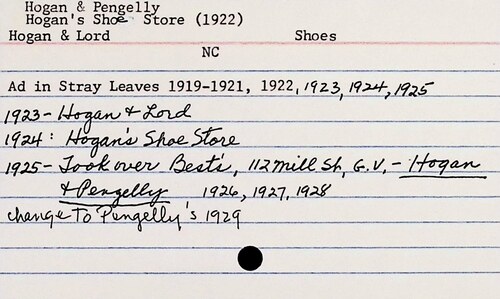 Hogan & Pengelly
Hogan's Shoe Store (1922)
Hogan & Lord Shoes
NC
Ad in Stray Leaves 1919-1921, 1922, 1923, 1924, 1925
1923- Hogan & Lord
1924: Hogan's Shoe Store
1925- Took over Best's, 112 Mill St, G.V. - Hogan
& Pengelly 1926, 1927, 1928
change to Pengelly's 1929